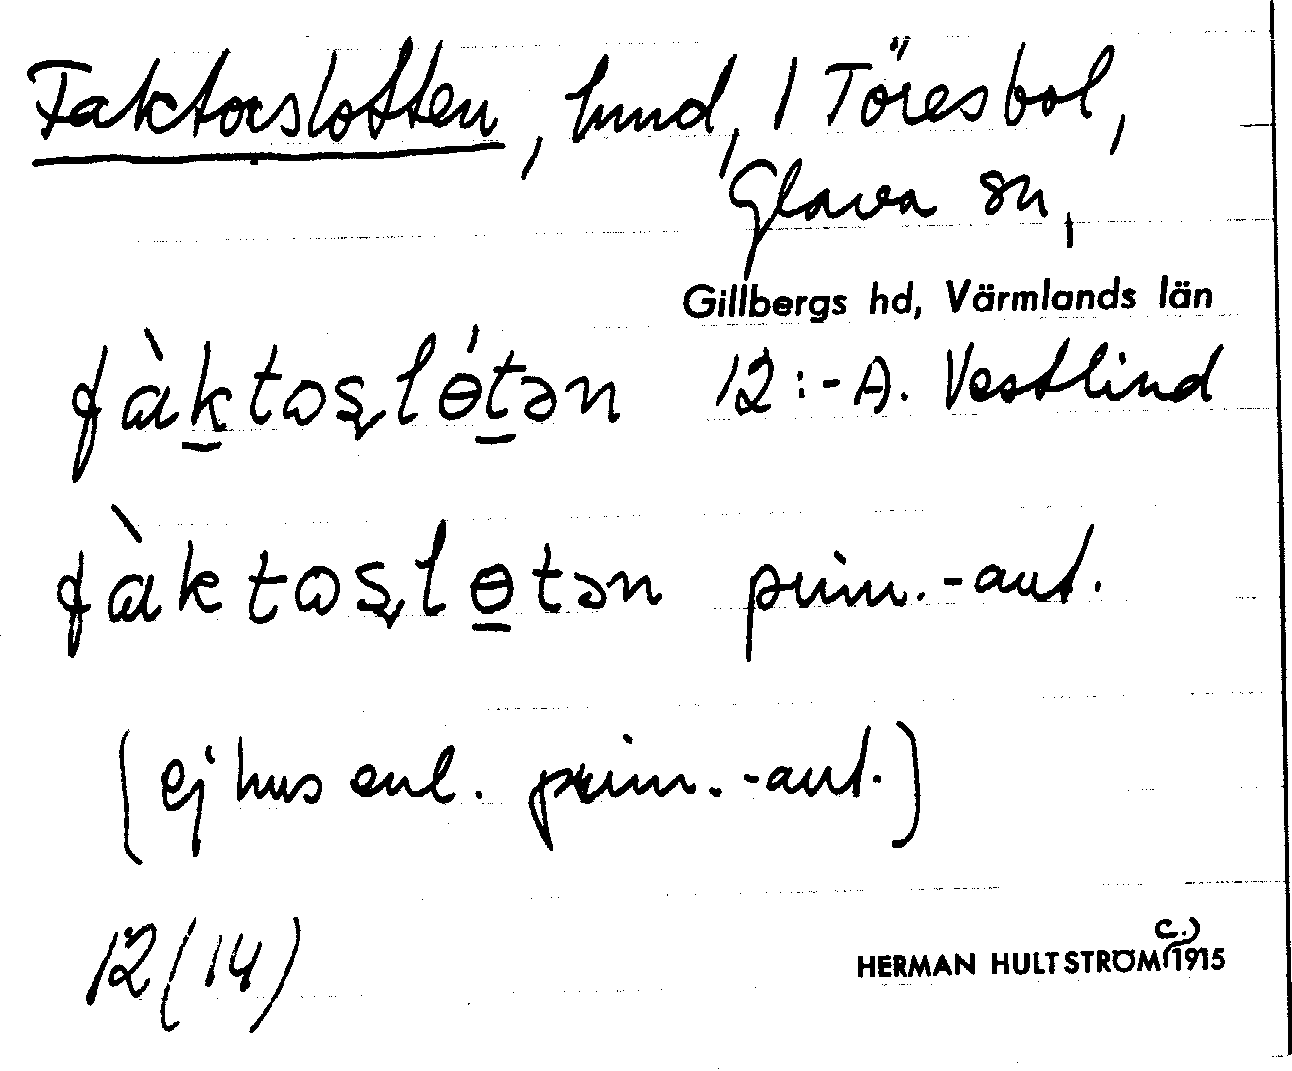 Faktorslotten, hmd, 1 Töresbol,
Glava sn,
Gillbergs hd, Värmlands län
fàk̲toʂlɵ́t̲ən 12:-A. Vestlind
fàktoʂlɵ̲tən prim.-aut.
(ej hus enl. prim.-aut.)
12(14)
HERMAN HULTSTRÖM (c.) 1915